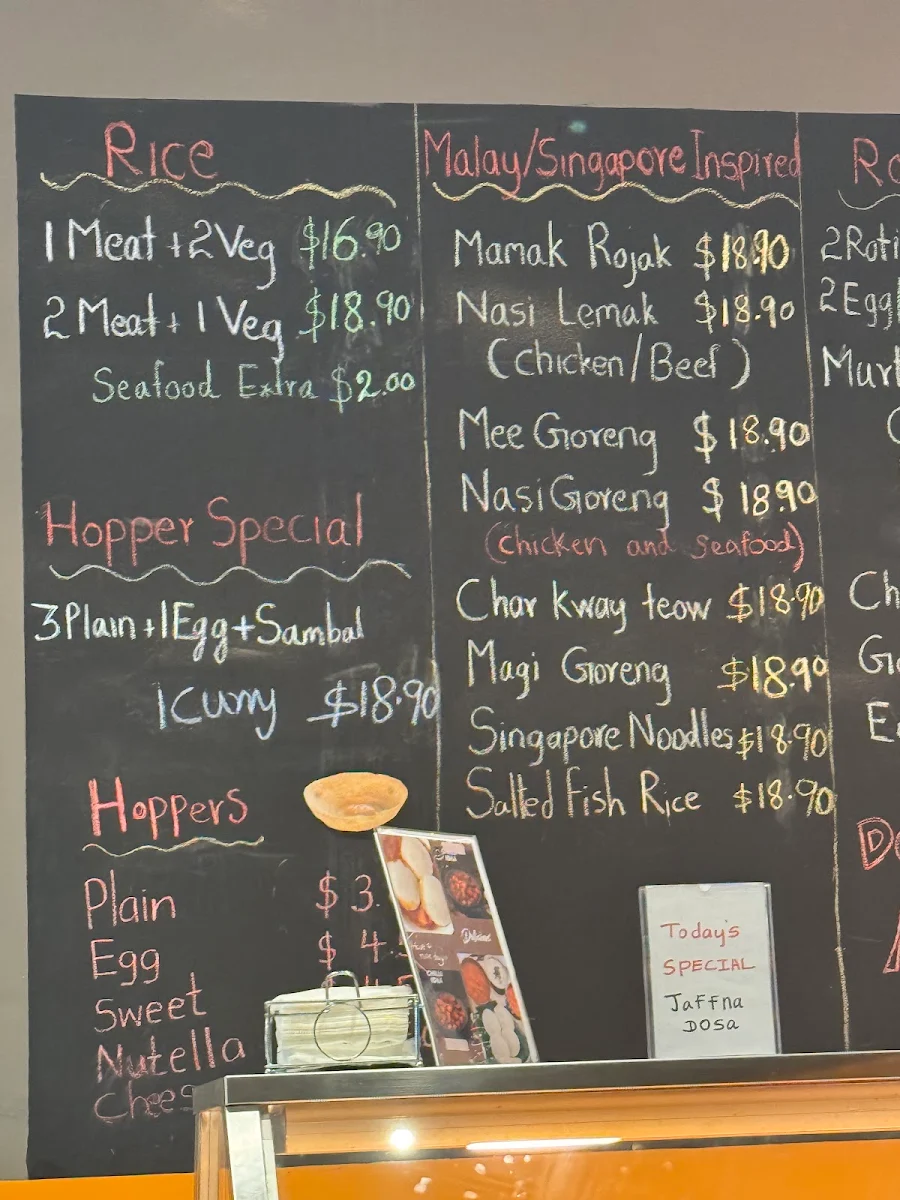 Rice
1 Meat + 2 Veg $16.90
2 Meat + 1 Veg $18.90
Seafood Extra $2.00
Hopper Special
3 Plain + 1 Egg + Sambal
1 Curry $18.90
Hoppers
Plain $3.
Egg $4.
Sweet
Nutella
Chees
Malay/Singapore Inspired
Mamak Rojak $18.90
Nasi Lemak $18.90
(Chicken/Beef)
Mee Goreng $18.90
Nasi Goreng $18.90
(Chicken and Seafood)
Char kway teow $18.90
Magi Goreng $18.90
Singapore Noodles $18.90
Salted Fish Rice $18.90
2 Roti
2 Egg
Today's
SPECIAL
Jaffna
DOSa